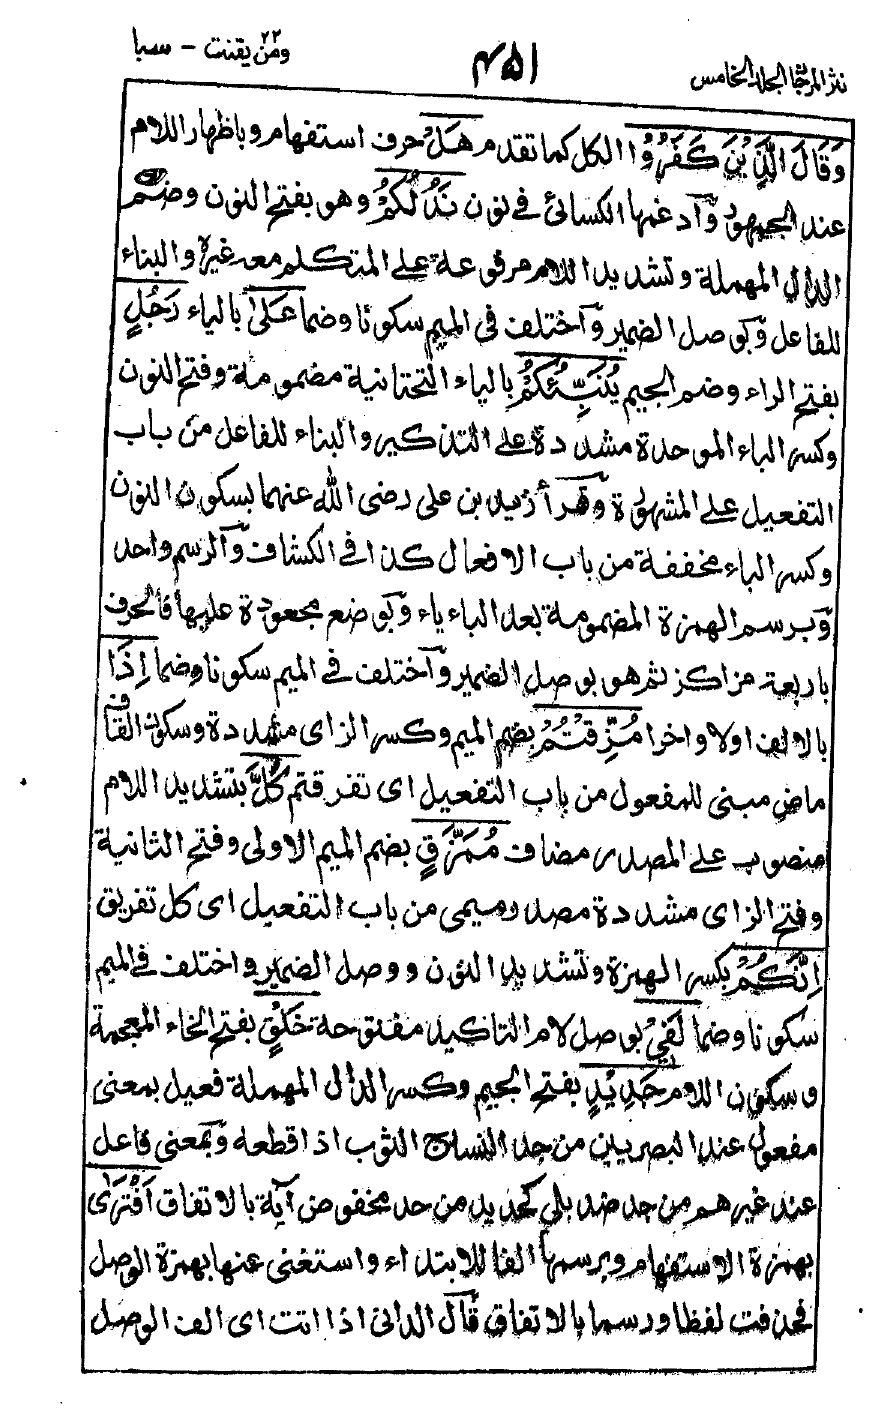 نثر المرجان الجلد الخامس
٤٥١
ومن يقنت ٢٢ - سبا
وَقَالَ الَّذِيْنَ كَفَرُوْا الكل كما تقدم هَلْ حرف استفهام وباظهار اللام
عند الجمهور وآدغمها الكسائئ في نون نَدُلُّكُمْ وهو بفتح النون وضم
الدال المهملة وتشديد اللام مرفوعة على المتكلم معه غيره والبناء
للفاعل وبوصل الضمير وآختلف في الميم سكونا وضما عَلٰى بالياء رَجُلٍ
بفتح الراء وضم الجيم يُنَبِّئُكُمْ بالياء التحتانية مضمومة وفتح النون
وكسر الباء الموحدة مشددة على التذكير والبناء للفاعل من باب
التفعيل على المشهورة وقرأ زيد بن على رضى الله عنهما بسكون النون
وكسر الباء مخففة من باب الافعال كذا في الكشاف وآلرسم واحد
وبرسم الهمزة المضمومة بعد الباء ياء وبوضع مجعودة عليها فالحرف
باربعة مراكز ثم هو بوصل الضمير وآختلف في الميم سكونا وضما اِذَا
بالالف اولا واخرا مُزِّقْتُمْ بضم الميم وكسر الزاى مشددة وسكون القاف
ماض مبنى للمفعول من باب التفعيل اى تفرقتم كُلَّ بتشديد اللام
منصوب على المصدر مضاف مُمَزَّقٍ بضم الميم الاولى وفتح الثانية
وفتح الزاى مشددة مصدر ميمى من باب التفعيل اى كل تفريق
اِنَّكُمْ بكسر الهمزة وتشديد النون ووصل الضمير واختلف في الميم
سكونا وضما لَفِيْ بوصل لام التاكيد مفتوحة خَلْقٍ بفتح الخاء المعجمة
وسكون اللام جَدِيْدٍ بفتح الجيم وكسر الدال المهملة فعيل بمعنى
مفعول عند البصريين من جد النساج الثوب اذا قطعه وبمعنى فاعل
عند غيرهم من جد ضد بلي كحديد من حد مخفوض آية بالاتفاق اَفْتَرٰى
بهمزة الاستفهام وبرسمها الفا للابتداء واستغنى عنها بهمزة الوصل
فحذفت لفظا ورسما بالاتفاق قآل الدانئ اذا اتت اى الف الوصل